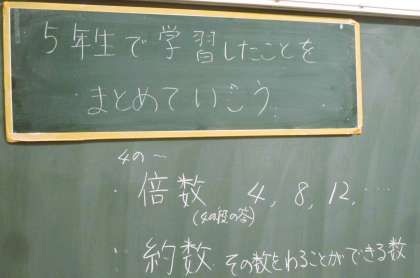 5年生で学習したことを
まとめていこう
4の〜
・倍数 4, 8, 12, …
(4の段の答)
・約数 その数をわることができる数